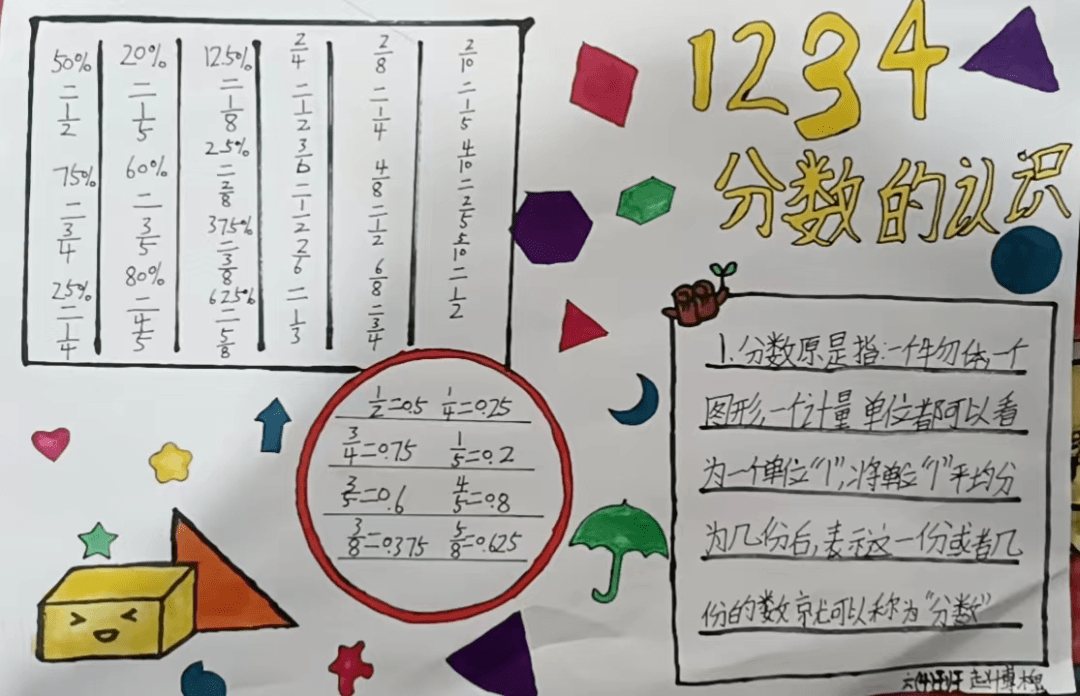 1234
分数的认识
50%
=
1/2
75%
=
3/4
25%
=
1/4
20%
=
1/5
60%
=
3/5
80%
=
4/5
12.5%
=
1/8
25%
=
2/8
375%
=
3/8
625%
=
5/8
2/4
=
1/2
3/6
=
1/2
2/6
=
1/3
2/8
=
1/4
4/8
=
1/2
6/8
=
3/4
2/10
=
1/5
4/10
=
2/5
5/10
=
1/2
1/2=0.5 1/4=0.25
3/4=0.75 1/5=0.2
3/5=0.6 4/5=0.8
3/8=0.375 5/8=0.625
1、分数原是指:一个物体,一个
图形,一个计量单位都可以看
为一个单位“1”,将单位“1”平均分
为几份后,表示这一份或者几
份的数就可以称为“分数”
六(4)班